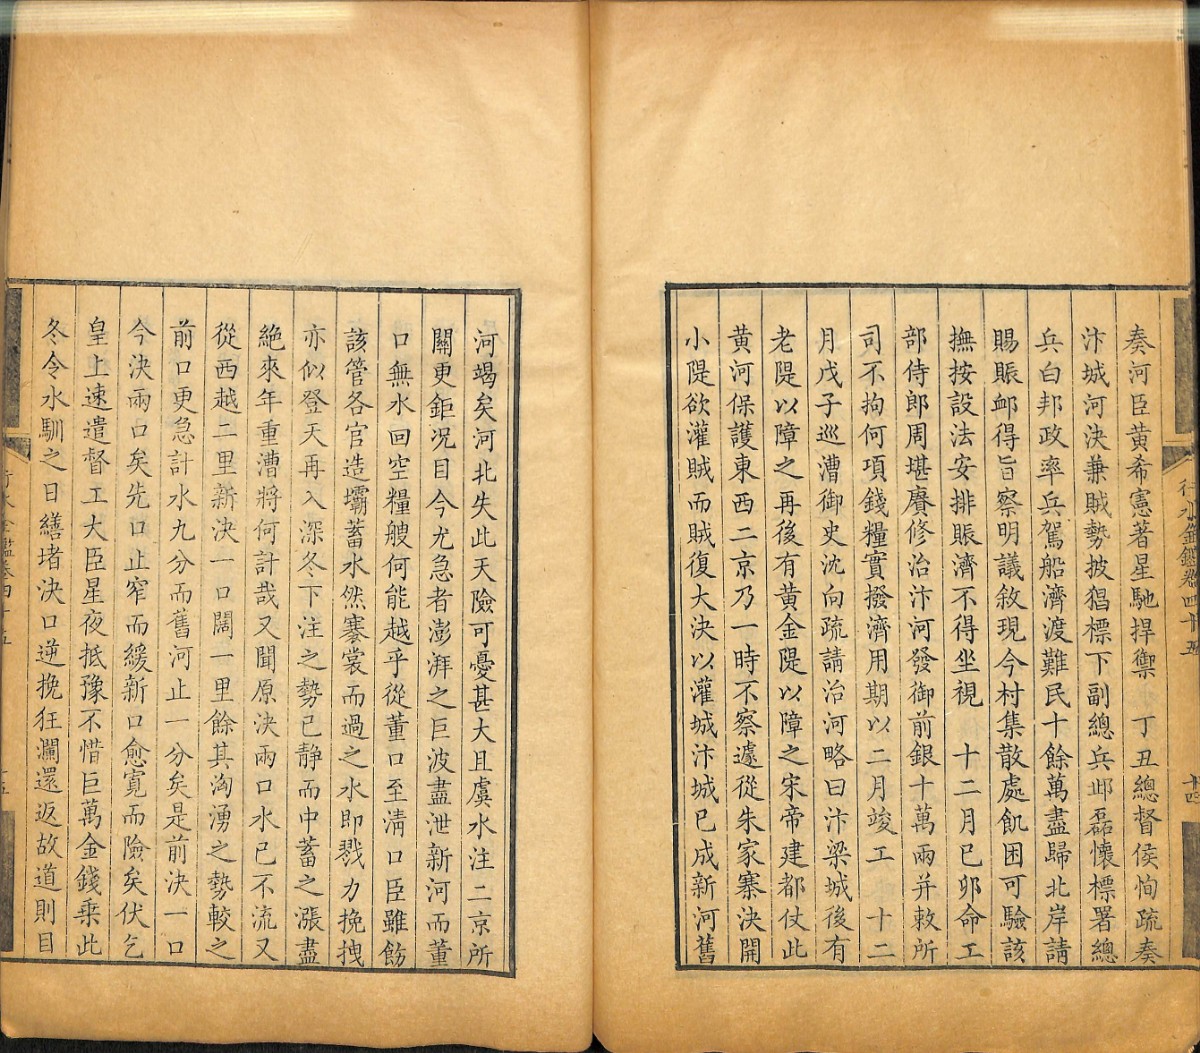 奏河臣黃希憲著星馳捍禦　丁丑總督侯恂疏奏
汴城河決兼賊勢披猖標下副總兵邶磊懷標署總
兵白邦政率兵駕船濟渡難民十餘萬盡歸北岸請
賜賑卹得旨察明議敘現今村集散處飢困可驗該
撫按設法安排賑濟不得坐視　十二月已卯命工
部侍郎周堪賡修治汴河發御前銀十萬兩并敕所
司不拘何項錢糧實撥濟用期以二月竣工　十二
月戊子巡漕御史沈向疏請治河略曰汴梁城後有
老隄以障之再後有黃金隄以障之宋帝建都仗此
黃河保護東西二京乃一時不察遽從朱家寨決開
小隄欲灌賊而賊復大決以灌城汴城已成新河舊
行水金鑑卷四十五
十四
河竭矣河北失此天險可憂甚大且虞水注二京所
關更鉅況目今尤急者澎湃之巨波盡泄新河而董
口無水回空糧艘何能越乎從董口至淸口臣雖飭
該管各官造壩蓄水然褰裳而過之水即戮力挽拽
亦似登天再入深冬下注之勢已靜而中蓄之漲盡
絶來年重漕將何計哉又聞原決兩口水已不流又
從西越二里新決一口闊一里餘其洶湧之勢較之
前口更急計水九分而舊河止一分矣是前決一口
今決兩口矣先口止窄而緩新口愈寛而險矣伏乞
皇上速遣督工大臣星夜抵豫不惜巨萬金錢乘此
冬令水馴之日繕堵決口逆挽狂瀾還返故道則目
行水金鑑卷四十五